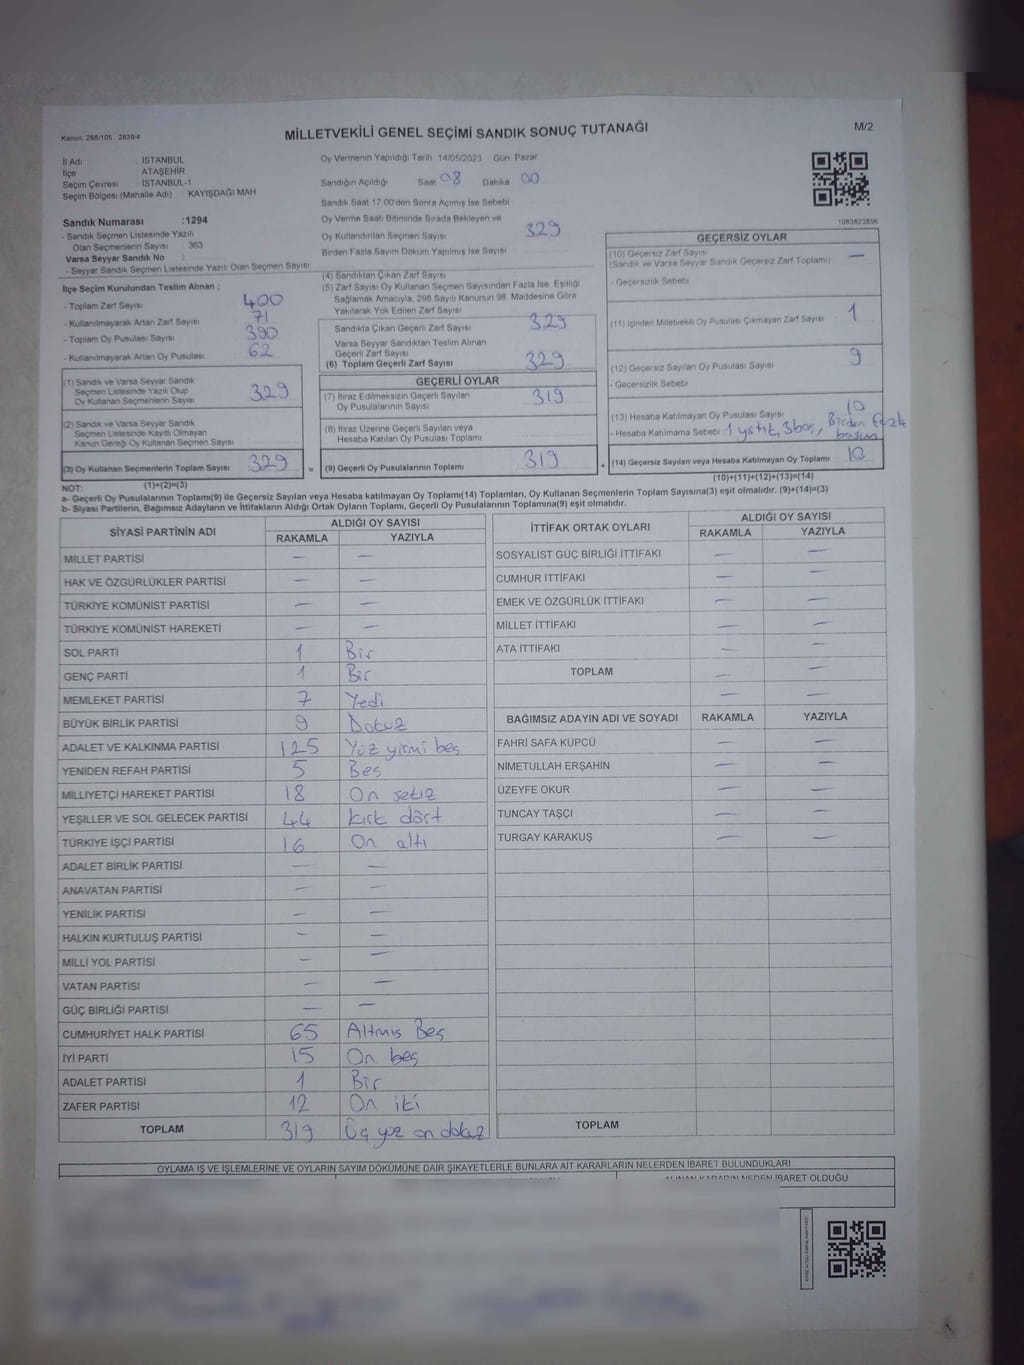 Kanun: 298/105 , 2839/4
MİLLETVEKİLİ GENEL SEÇİMİ SANDIK SONUÇ TUTANAĞI
M/2
İl Adı : İSTANBUL
İlçe : ATAŞEHİR
Seçim Çevresi : İSTANBUL-1
Seçim Bölgesi (Mahalle Adı) : KAYIŞDAĞI MAH
Sandık Numarası :1294
- Sandık Seçmen Listesinde Yazılı
Olan Seçmenlerin Sayısı : 363
Varsa Seyyar Sandık No :
- Seyyar Sandık Seçmen Listesinde Yazılı Olan Seçmen Sayısı
Oy Vermenin Yapıldığı Tarih 14/05/2023 Gün: Pazar
Sandığın Açıldığı Saat 08 Dakika 00
Sandık Saat 17:00'den Sonra Açılmış İse Sebebi
Oy Verme Saati Bitiminde Sırada Bekleyen ve
Oy Kullandırılan Seçmen Sayısı 329
Birden Fazla Sayım Döküm Yapılmış İse Sayısı
1083823856
İlçe Seçim Kurulundan Teslim Alınan ;
- Toplam Zarf Sayısı 400
- Kullanılmayarak Artan Zarf Sayısı 71
- Toplam Oy Pusulası 390
- Kullanılmayarak Artan Oy Pusulası 62
(1) Sandık ve Varsa Seyyar Sandık
Seçmen Listesinde Yazılı Olup
Oy Kullanan Seçmenlerin Sayısı 329
(2) Sandık ve Varsa Seyyar Sandık
Seçmen Listesinde Kayıtlı Olmayan
Kanun Gereği Oy Kullanan Seçmen Sayısı
(3) Oy Kullanan Seçmenlerin Toplam Sayısı 329 =
(1)+(2)=(3)
(4) Sandıktan Çıkan Zarf Sayısı
(5) Zarf Sayısı Oy Kullanan Seçmen Sayısından Fazla İse, Eşitliği
Sağlamak Amacıyla, 298 Sayılı Kanunun 98. Maddesine Göre
Yakılarak Yok Edilen Zarf Sayısı
Sandıkta Çıkan Geçerli Zarf Sayısı 329
Varsa Seyyar Sandıktan Teslim Alınan
Geçerli Zarf Sayısı
(6) Toplam Geçerli Zarf Sayısı 329
GEÇERLİ OYLAR
(7) İtiraz Edilmeksizin Geçerli Sayılan
Oy Pusulalarının Sayısı 319
(8) İtiraz Üzerine Geçerli Sayılan veya
Hesaba Katılan Oy Pusulası Toplamı
(9) Geçerli Oy Pusulalarının Toplamı 319 +
GEÇERSİZ OYLAR
(10) Geçersiz Zarf Sayısı —
(Sandık ve Varsa Seyyar Sandık Geçersiz Zarf Toplamı)
- Geçersizlik Sebebi
(11) İçinden Milletvekili Oy Pusulası Çıkmayan Zarf Sayısı 1
(12) Geçersiz Sayılan Oy Pusulası Sayısı 9
- Geçersizlik Sebebi
(13) Hesaba Katılmayan Oy Pusulası Sayısı 10
- Hesaba Katılmama Sebebi 1 yırtık, 3 boş, Birden fazla
basım
(14) Geçersiz Sayılan veya Hesaba Katılmayan Oy Toplamı 10
(10)+(11)+(12)+(13)=(14)
NOT:
a- Geçerli Oy Pusulalarının Toplamı(9) ile Geçersiz Sayılan veya Hesaba katılmayan Oy Toplamı(14) Toplamları, Oy Kullanan Seçmenlerin Toplam Sayısına(3) eşit olmalıdır. (9)+(14)=(3)
b- Siyasi Partilerin, Bağımsız Adayların ve İttifakların Aldığı Ortak Oyların Toplamı, Geçerli Oy Pusulalarının Toplamına(9) eşit olmalıdır.
SİYASİ PARTİNİN ADI
ALDIĞI OY SAYISI
RAKAMLA YAZIYLA
MİLLET PARTİSİ — —
HAK VE ÖZGÜRLÜKLER PARTİSİ — —
TÜRKİYE KOMÜNİST PARTİSİ — —
TÜRKİYE KOMÜNİST HAREKETİ — —
SOL PARTİ 1 Bir
GENÇ PARTİ 1 Bir
MEMLEKET PARTİSİ 7 Yedi
BÜYÜK BİRLİK PARTİSİ 9 Dokuz
ADALET VE KALKINMA PARTİSİ 125 Yüz yirmi beş
YENİDEN REFAH PARTİSİ 5 Beş
MİLLİYETÇİ HAREKET PARTİSİ 18 On sekiz
YEŞİLLER VE SOL GELECEK PARTİSİ 44 kırk dört
TÜRKİYE İŞÇİ PARTİSİ 16 On altı
ADALET BİRLİK PARTİSİ — —
ANAVATAN PARTİSİ — —
YENİLİK PARTİSİ — —
HALKIN KURTULUŞ PARTİSİ — —
MİLLİ YOL PARTİSİ — —
VATAN PARTİSİ — —
GÜÇ BİRLİĞİ PARTİSİ — —
CUMHURİYET HALK PARTİSİ 65 Altmış Beş
İYİ PARTİ 15 On beş
ADALET PARTİSİ 1 Bir
ZAFER PARTİSİ 12 On iki
TOPLAM 319 Üç yüz on dokuz
İTTİFAK ORTAK OYLARI
ALDIĞI OY SAYISI
RAKAMLA YAZIYLA
SOSYALİST GÜÇ BİRLİĞİ İTTİFAKI — —
CUMHUR İTTİFAKI — —
EMEK VE ÖZGÜRLÜK İTTİFAKI — —
MİLLET İTTİFAKI — —
ATA İTTİFAKI — —
TOPLAM — —
— —
BAĞIMSIZ ADAYIN ADI VE SOYADI RAKAMLA YAZIYLA
FAHRİ SAFA KÜPCÜ — —
NİMETULLAH ERŞAHİN — —
ÜZEYFE OKUR — —
TUNCAY TAŞÇI — —
TURGAY KARAKUŞ — —
TOPLAM
OYLAMA İŞ VE İŞLEMLERİNE VE OYLARIN SAYIM DÖKÜMÜNE DAİR ŞİKAYETLERLE BUNLARA AİT KARARLARIN NELERDEN İBARET BULUNDUKLARI
ALINAN KARARIN NEDEN İBARET OLDUĞU